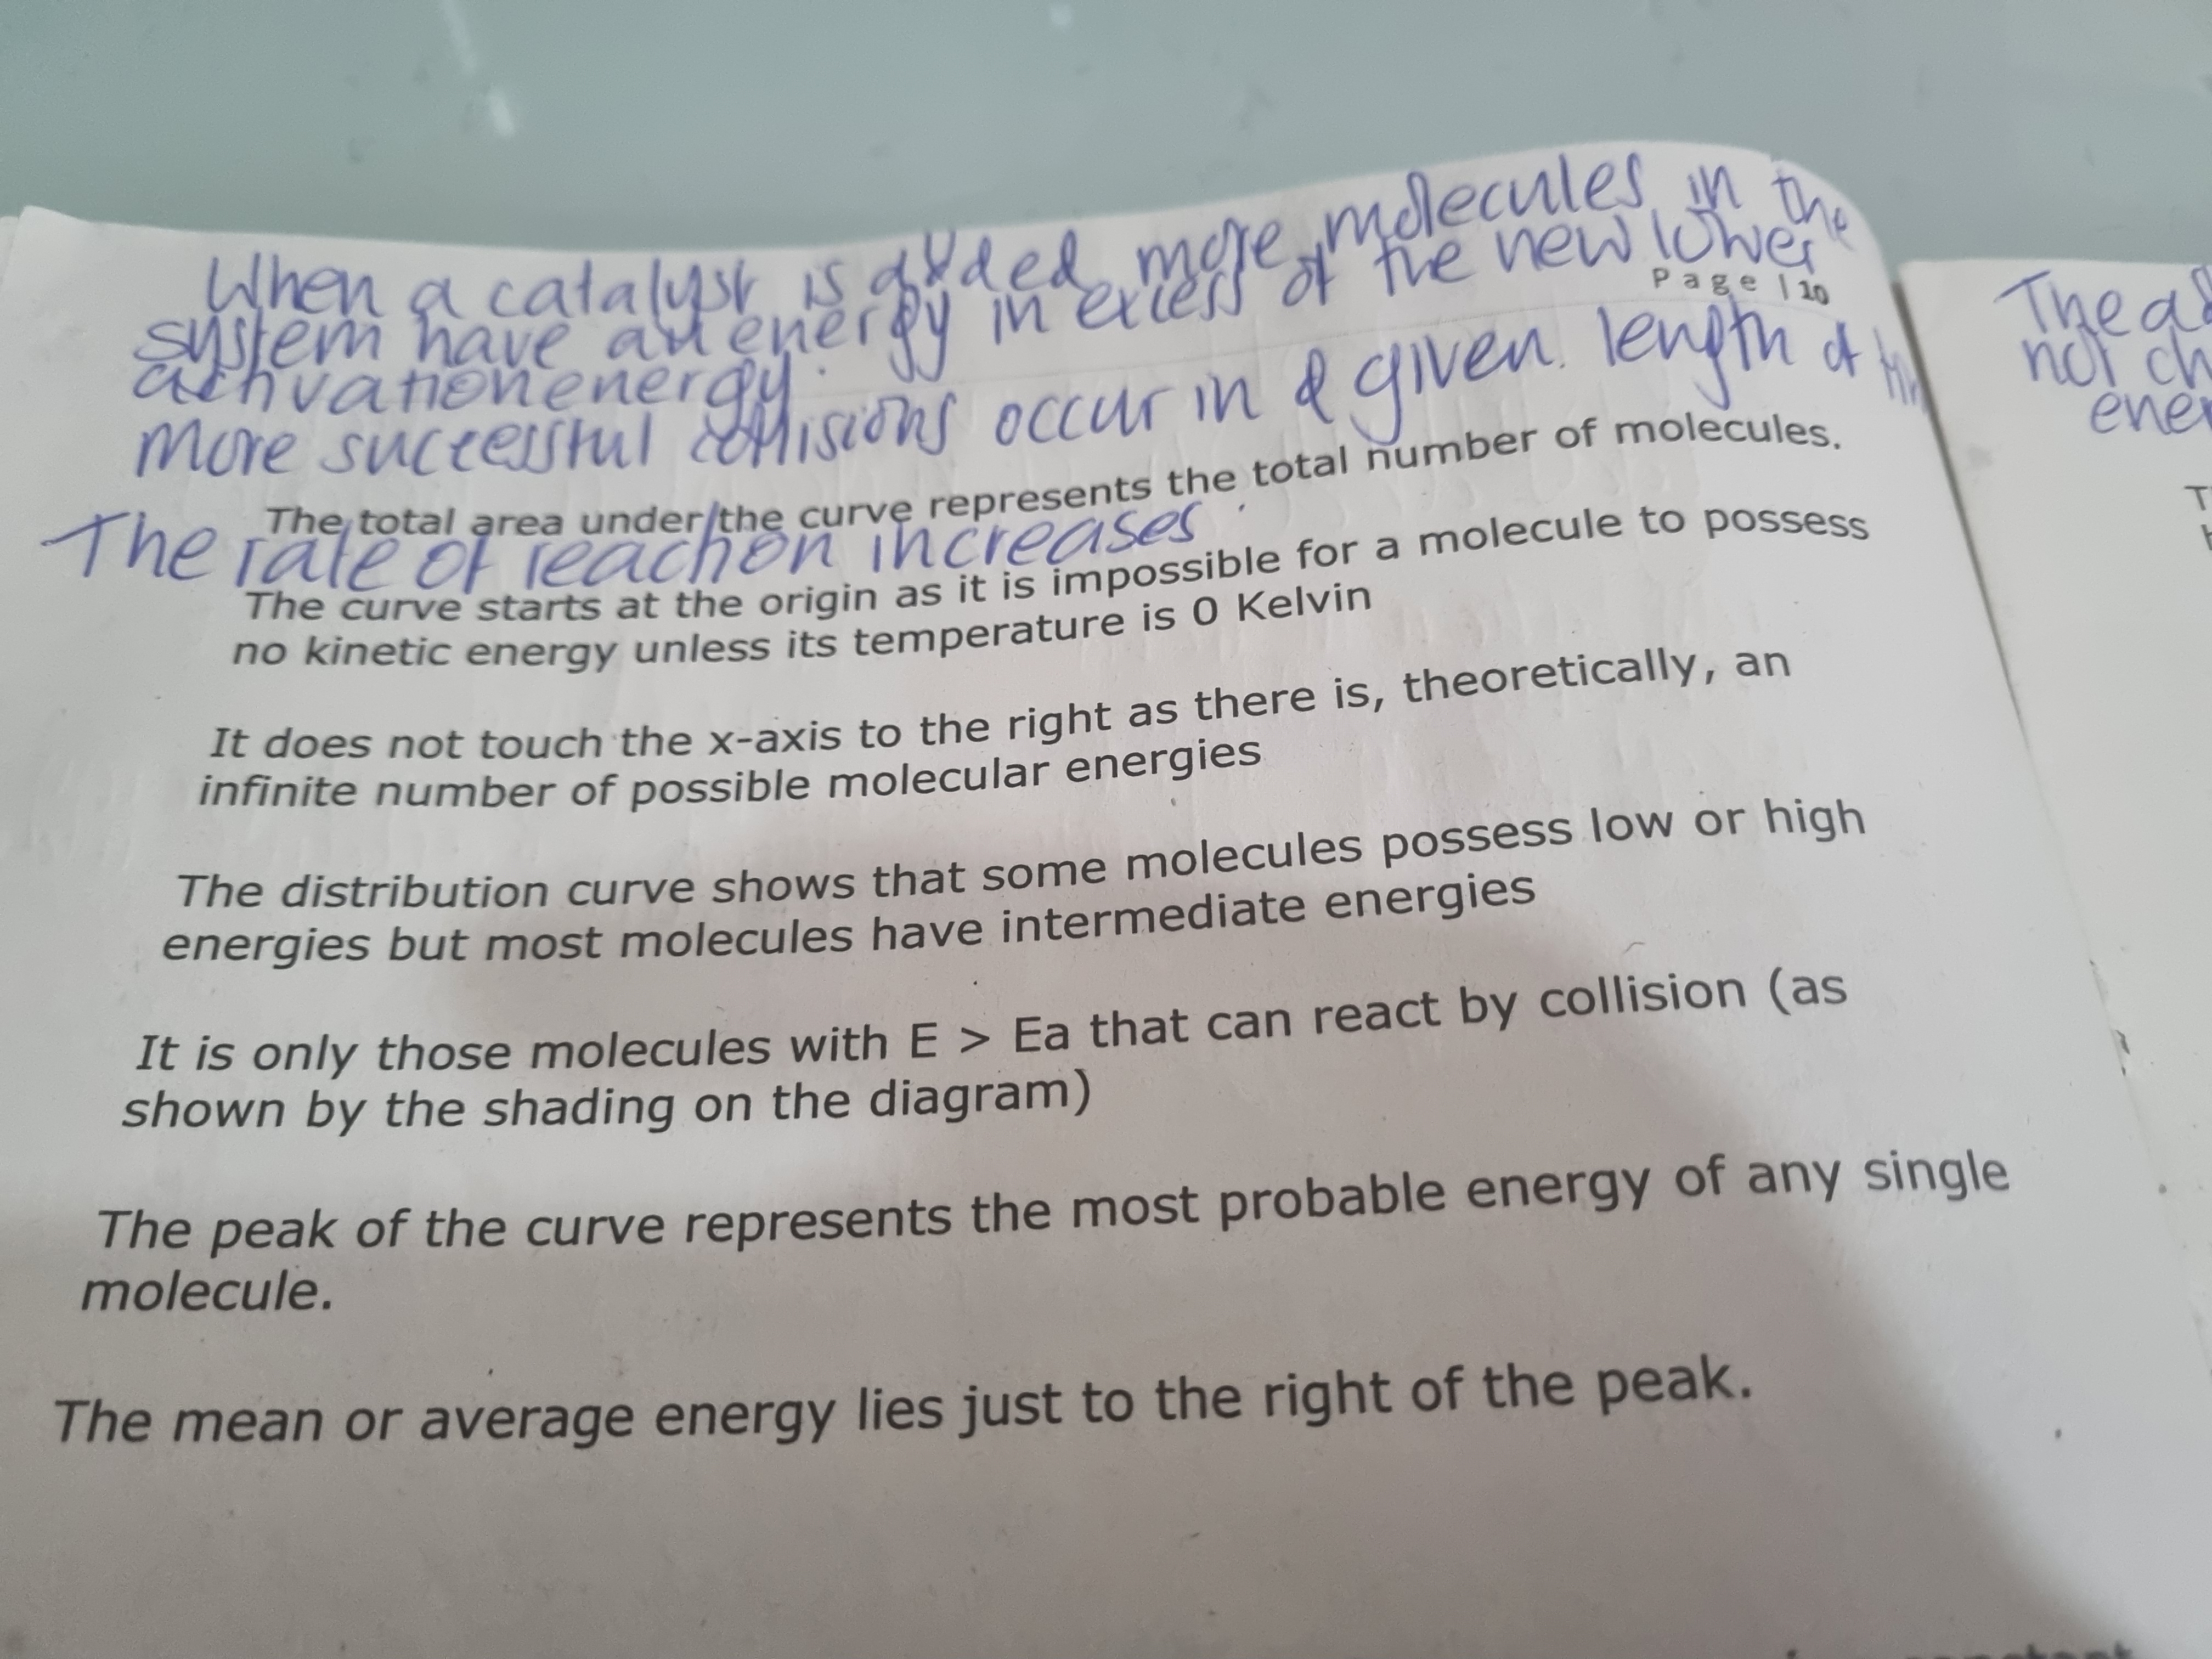 When a catalyst is added, more molecules in the
system have an energy in excess of the new lower
Page | 10
activation energy.
More successful collisions occur in a given length of
The total area under the curve represents the total number of molecules.
The rate of reaction increases.
The curve starts at the origin as it is impossible for a molecule to possess
no kinetic energy unless its temperature is 0 Kelvin
It does not touch the x-axis to the right as there is, theoretically, an
infinite number of possible molecular energies
The distribution curve shows that some molecules possess low or high
energies but most molecules have intermediate energies
It is only those molecules with E > Ea that can react by collision (as
shown by the shading on the diagram)
The peak of the curve represents the most probable energy of any single
molecule.
The mean or average energy lies just to the right of the peak.
The
not